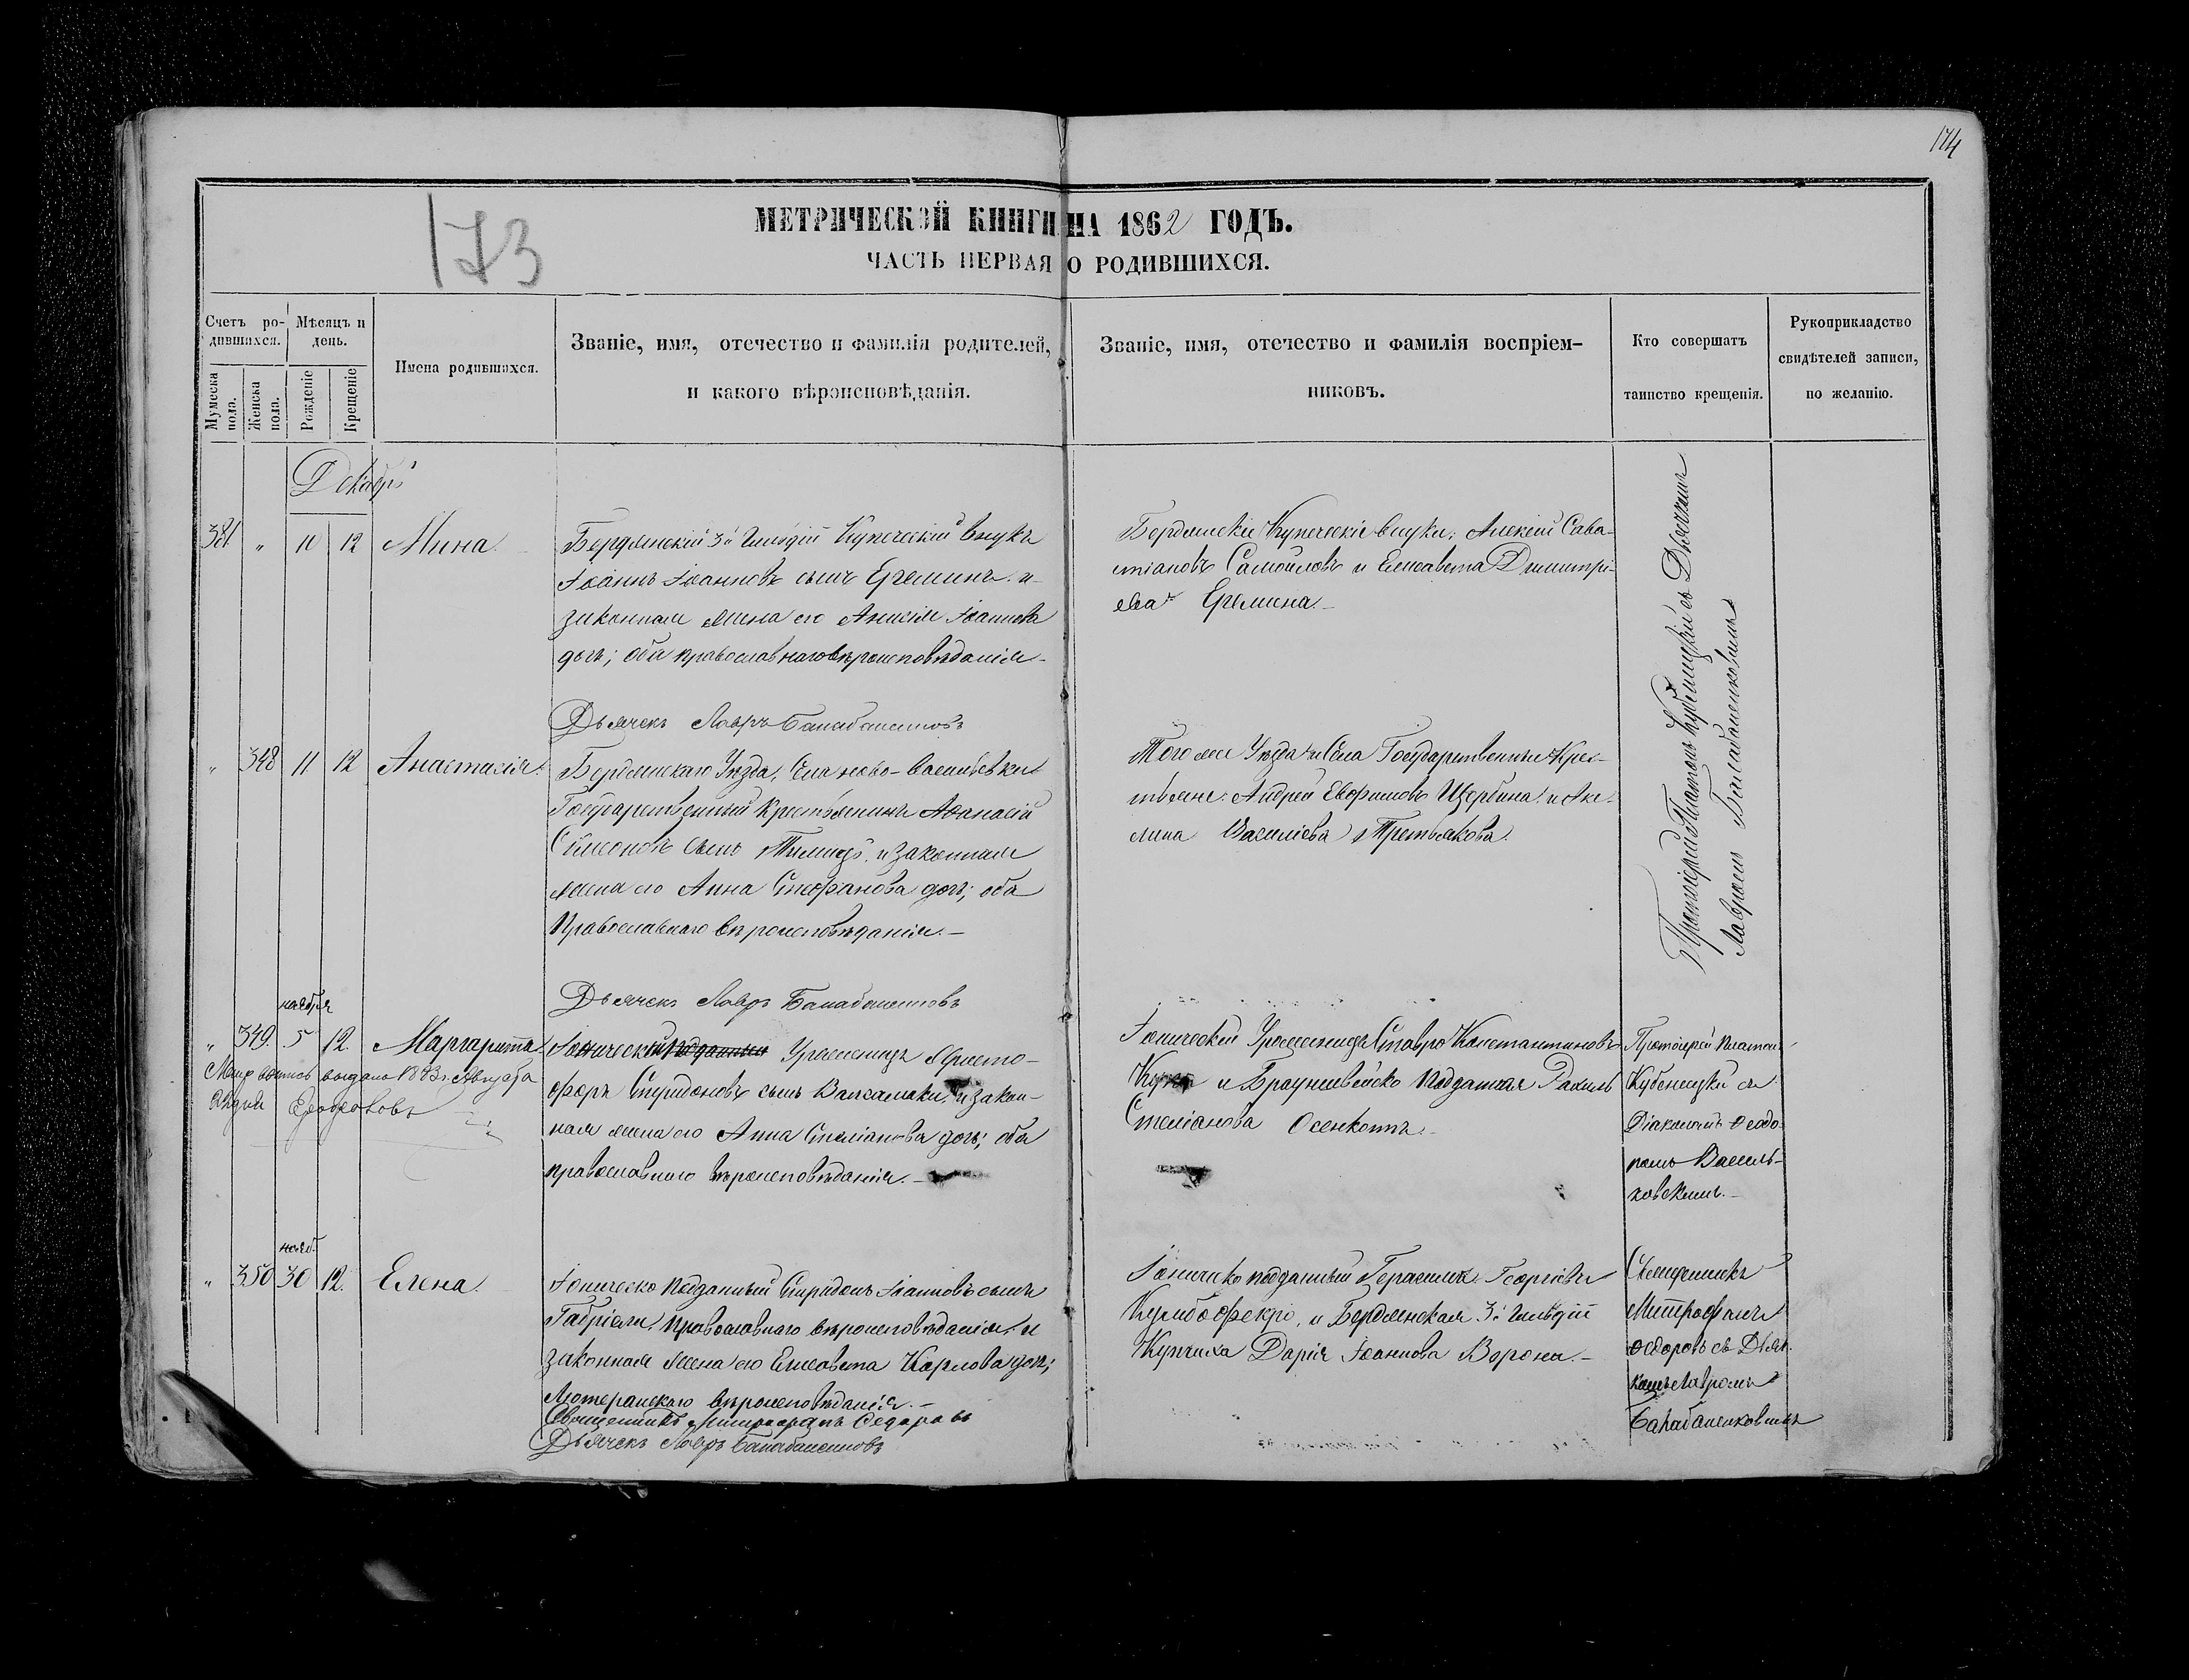 174
173
МЕТРИЧЕСКОЙ КНИГИ НА 1862 ГОДЪ.
ЧАСТЬ ПЕРВАЯ О РОДИВШИХСЯ.
Счетъ ро-
дившихся.
Мужеска
пола.
Женска
пола.
Мѣсяцъ и
день.
Рожденіе
Крещеніе
Имена родившихся.
Званіе, имя, отечество и фамилія родителей,
и какого вѣроисповѣданія.
Званіе, имя, отечество и фамилія воспріем-
никовъ.
Кто совершатъ
таинство крещенія.
Рукоприкладство
свидѣтелей записи,
по желанію.
Декабрь
381 " 10 12 Мина.
Бердянскій 3й Гильдіи Купеческій внукъ
Іоаннъ Іоанновъ сынъ Еремина и
законная жена его Анисія Іоаннова
дочь; оба православнаго вѣроисповѣданія
Дьячекъ Лавръ Балабаненковъ
Бердянскіе Купеческіе внуки; Алексій Сава-
тіановъ Самойловъ и Елисавета Димитрі-
ева Еремина.
Протоіерей Платонъ Кубеницкій съ Дьячкомъ
Лавромъ Балабаненковымъ
" 348 11 12 Анастасія.
Бердянскаго Уѣзда, Села Ново-Васильевки
Государственный крестьянинъ Аѳанасій
Симеоновъ сынъ и законная
жена его Анна Стефанова дочь; оба
Православнаго вѣроисповѣданія.
Дьячекъ Лавръ Балабаненковъ
Того же Уѣзда и Села Государственные Крес-
тьяне: Андрей Евфимовъ Щербина и Аки-
лина Василіева Третьякова.
ноября
" 349. 5 12. Маргарита
Метр выпись выдана 1883 г. Августа
Андрей
Іоническій подданный Уроженецъ Христо-
форъ Спиридоновъ сынъ Валсамаки, и закон-
ная жена его Анна Стеліанова дочь; оба
православнаго вѣроисповѣданія.
Іоническій Уроженецъ Ставро Константиновъ
и Брауншвейско Подданная Рахиль
Стеліанова
Протоіерей Платонъ
Кубеницкій съ
Діакономъ Ѳеодо-
ромъ Василь-
ковскимъ.
нояб.
" 350 30 12. Елена.
Іоническо подданный Спиридонъ Іоанновъ сынъ
Габріели, православнаго вѣроисповѣданія, и
законная жена его Елисавета Карлова дочь;
Лютеранскаго вѣроисповѣданія.
Священникъ Митрофанъ Ѳедоровъ
Дьячекъ Лавръ Балабаненковъ
Іоническо подданный Герасимъ Георгіевъ
и Бердянская 3й Гильдіи
Купчиха Дарія Іоаннова Ворони.
Священникъ
Митрофанъ
Ѳедоровъ съ Дьяч-
комъ Лавромъ
Балабаненковымъ